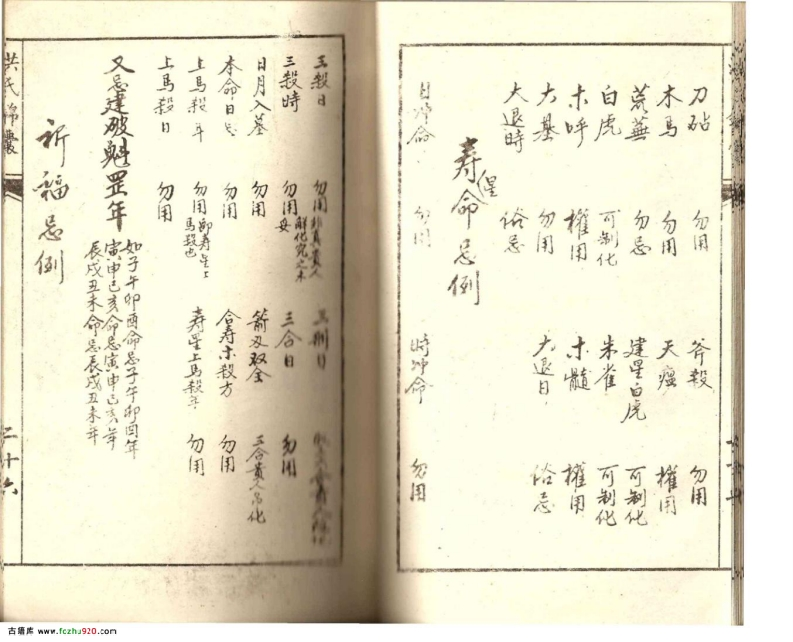 刀砧 勿用 斧殺 勿用
木馬 勿用 天瘟 權用
荒蕪 勿忌 建星白虎 可制化
白虎 可制化 朱雀 可制化
木呼 權用 木髓 權用
大墓 勿用
大退時 俗忌 大退日 俗忌
寿星命忌例
日沖命 勿用 時沖命 勿用
三殺日 勿用
三殺時 勿用 三合日 勿用
日月入墓 勿用 箭刃双全
本命日 勿用 合寿木殺方 勿用
上馬殺年 勿用 寿星上馬殺年 勿用
上馬殺日 勿用
又忌建破魁罡年
如子午卯酉命忌子午卯酉年
寅申巳亥命忌寅申巳亥年
辰戌丑未命忌辰戌丑未年
祈福忌例
洪氏錦囊
二十六
古籍库 www.fczhu920.com